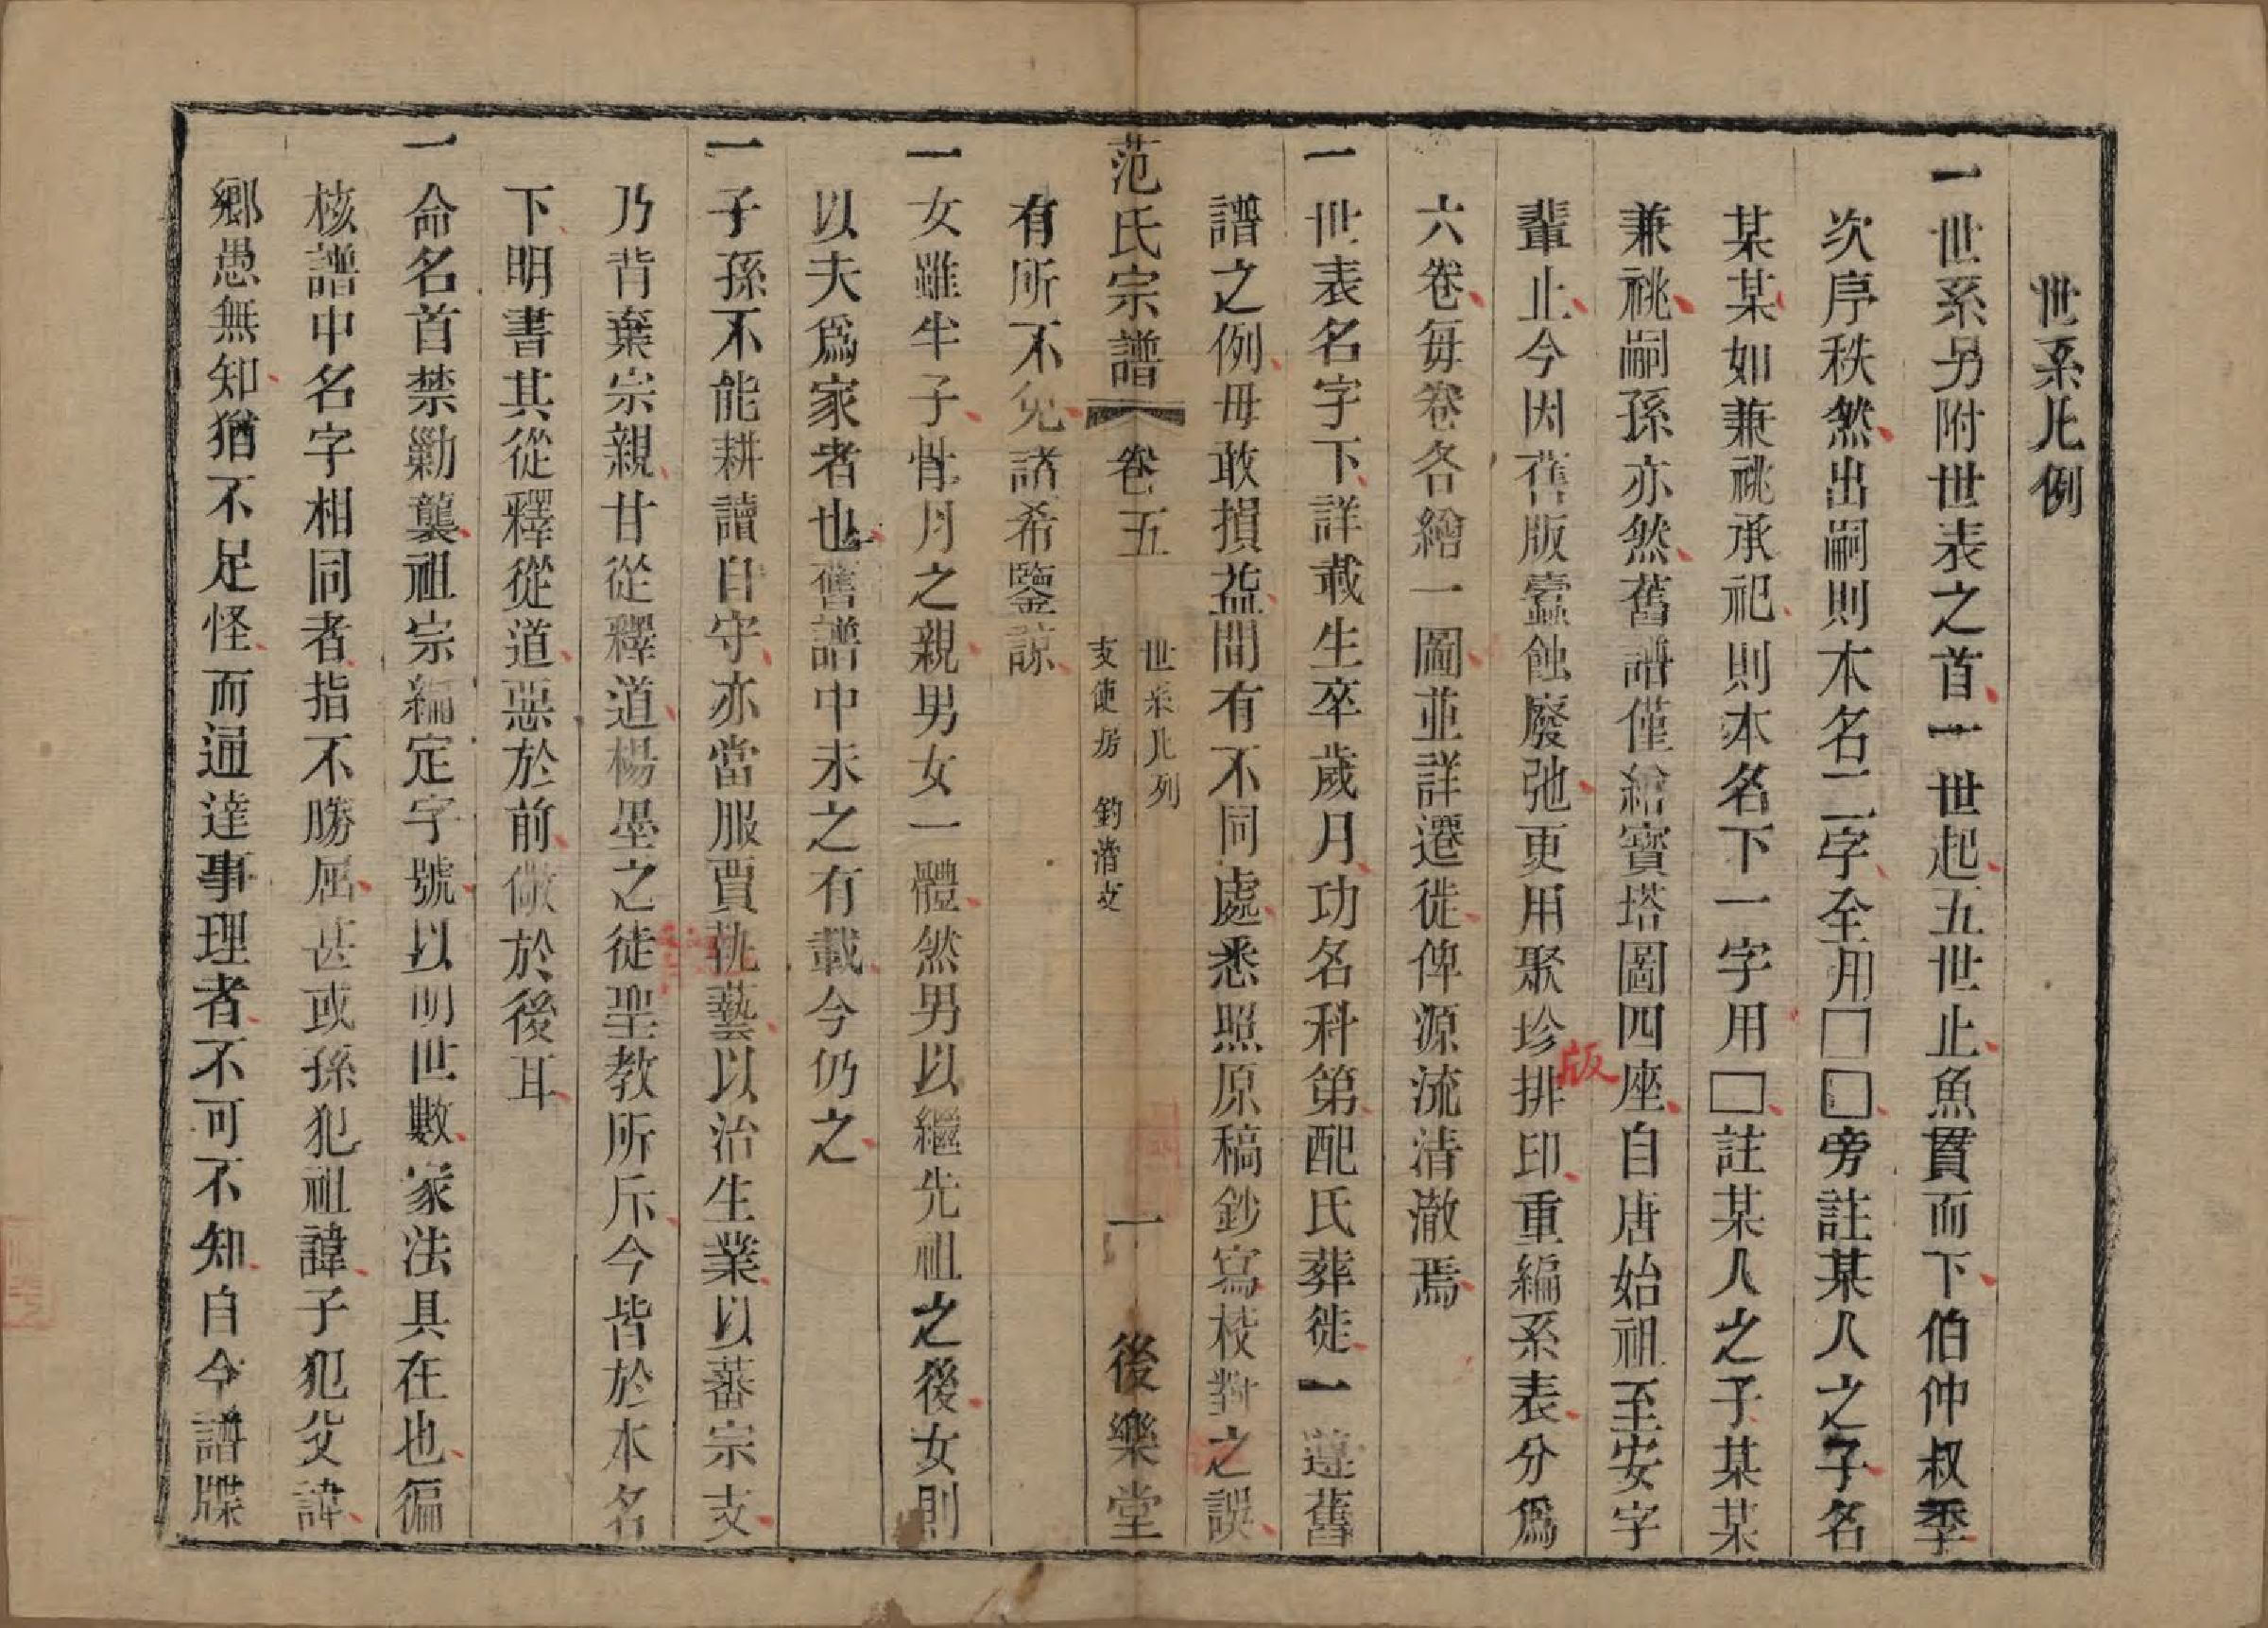 世系凡例
一世系另附世表之首一世起五世止魚貫而下伯仲叔季
次序秩然出嗣則木名二字全用囗囗旁註某人之子名
某某如兼祧承祀則本名下一字用囗註某人之子某某
兼祧嗣孫亦然舊譜僅繪寶塔圖四座自唐始祖至安字
輩止今因舊版蠹蝕廢弛更用聚珍排印重編系表分爲
版
六卷每卷各繪一圖並詳遷徙俾源流清澈焉
一世表名字下詳載生卒歲月功名科第配氏葬徙一遵舊
譜之例毋敢損益間有不同處悉照原稿鈔寫校對之誤
范氏宗譜 卷五 世系凡列 支使房 鈞濳支 一 後樂堂
有所不免諸希鑒諒
一女雖半子骨月之親男女一體然男以繼先祖之後女則
以夫爲家者也舊譜中未之有載今仍之
一子孫不能耕讀自守亦當服賈執藝以治生業以蕃宗支
乃背棄宗親甘從釋道楊墨之徒聖教所斥今皆於本名
下明書其從釋從道惡於前儆於後耳
一命名首禁勦襲祖宗編定字號以明世數家法具在也徧
核譜中名字相同者指不勝屈甚或孫犯祖諱子犯父諱
鄉愚無知猶不足怪而通達事理者不可不知自今譜牒